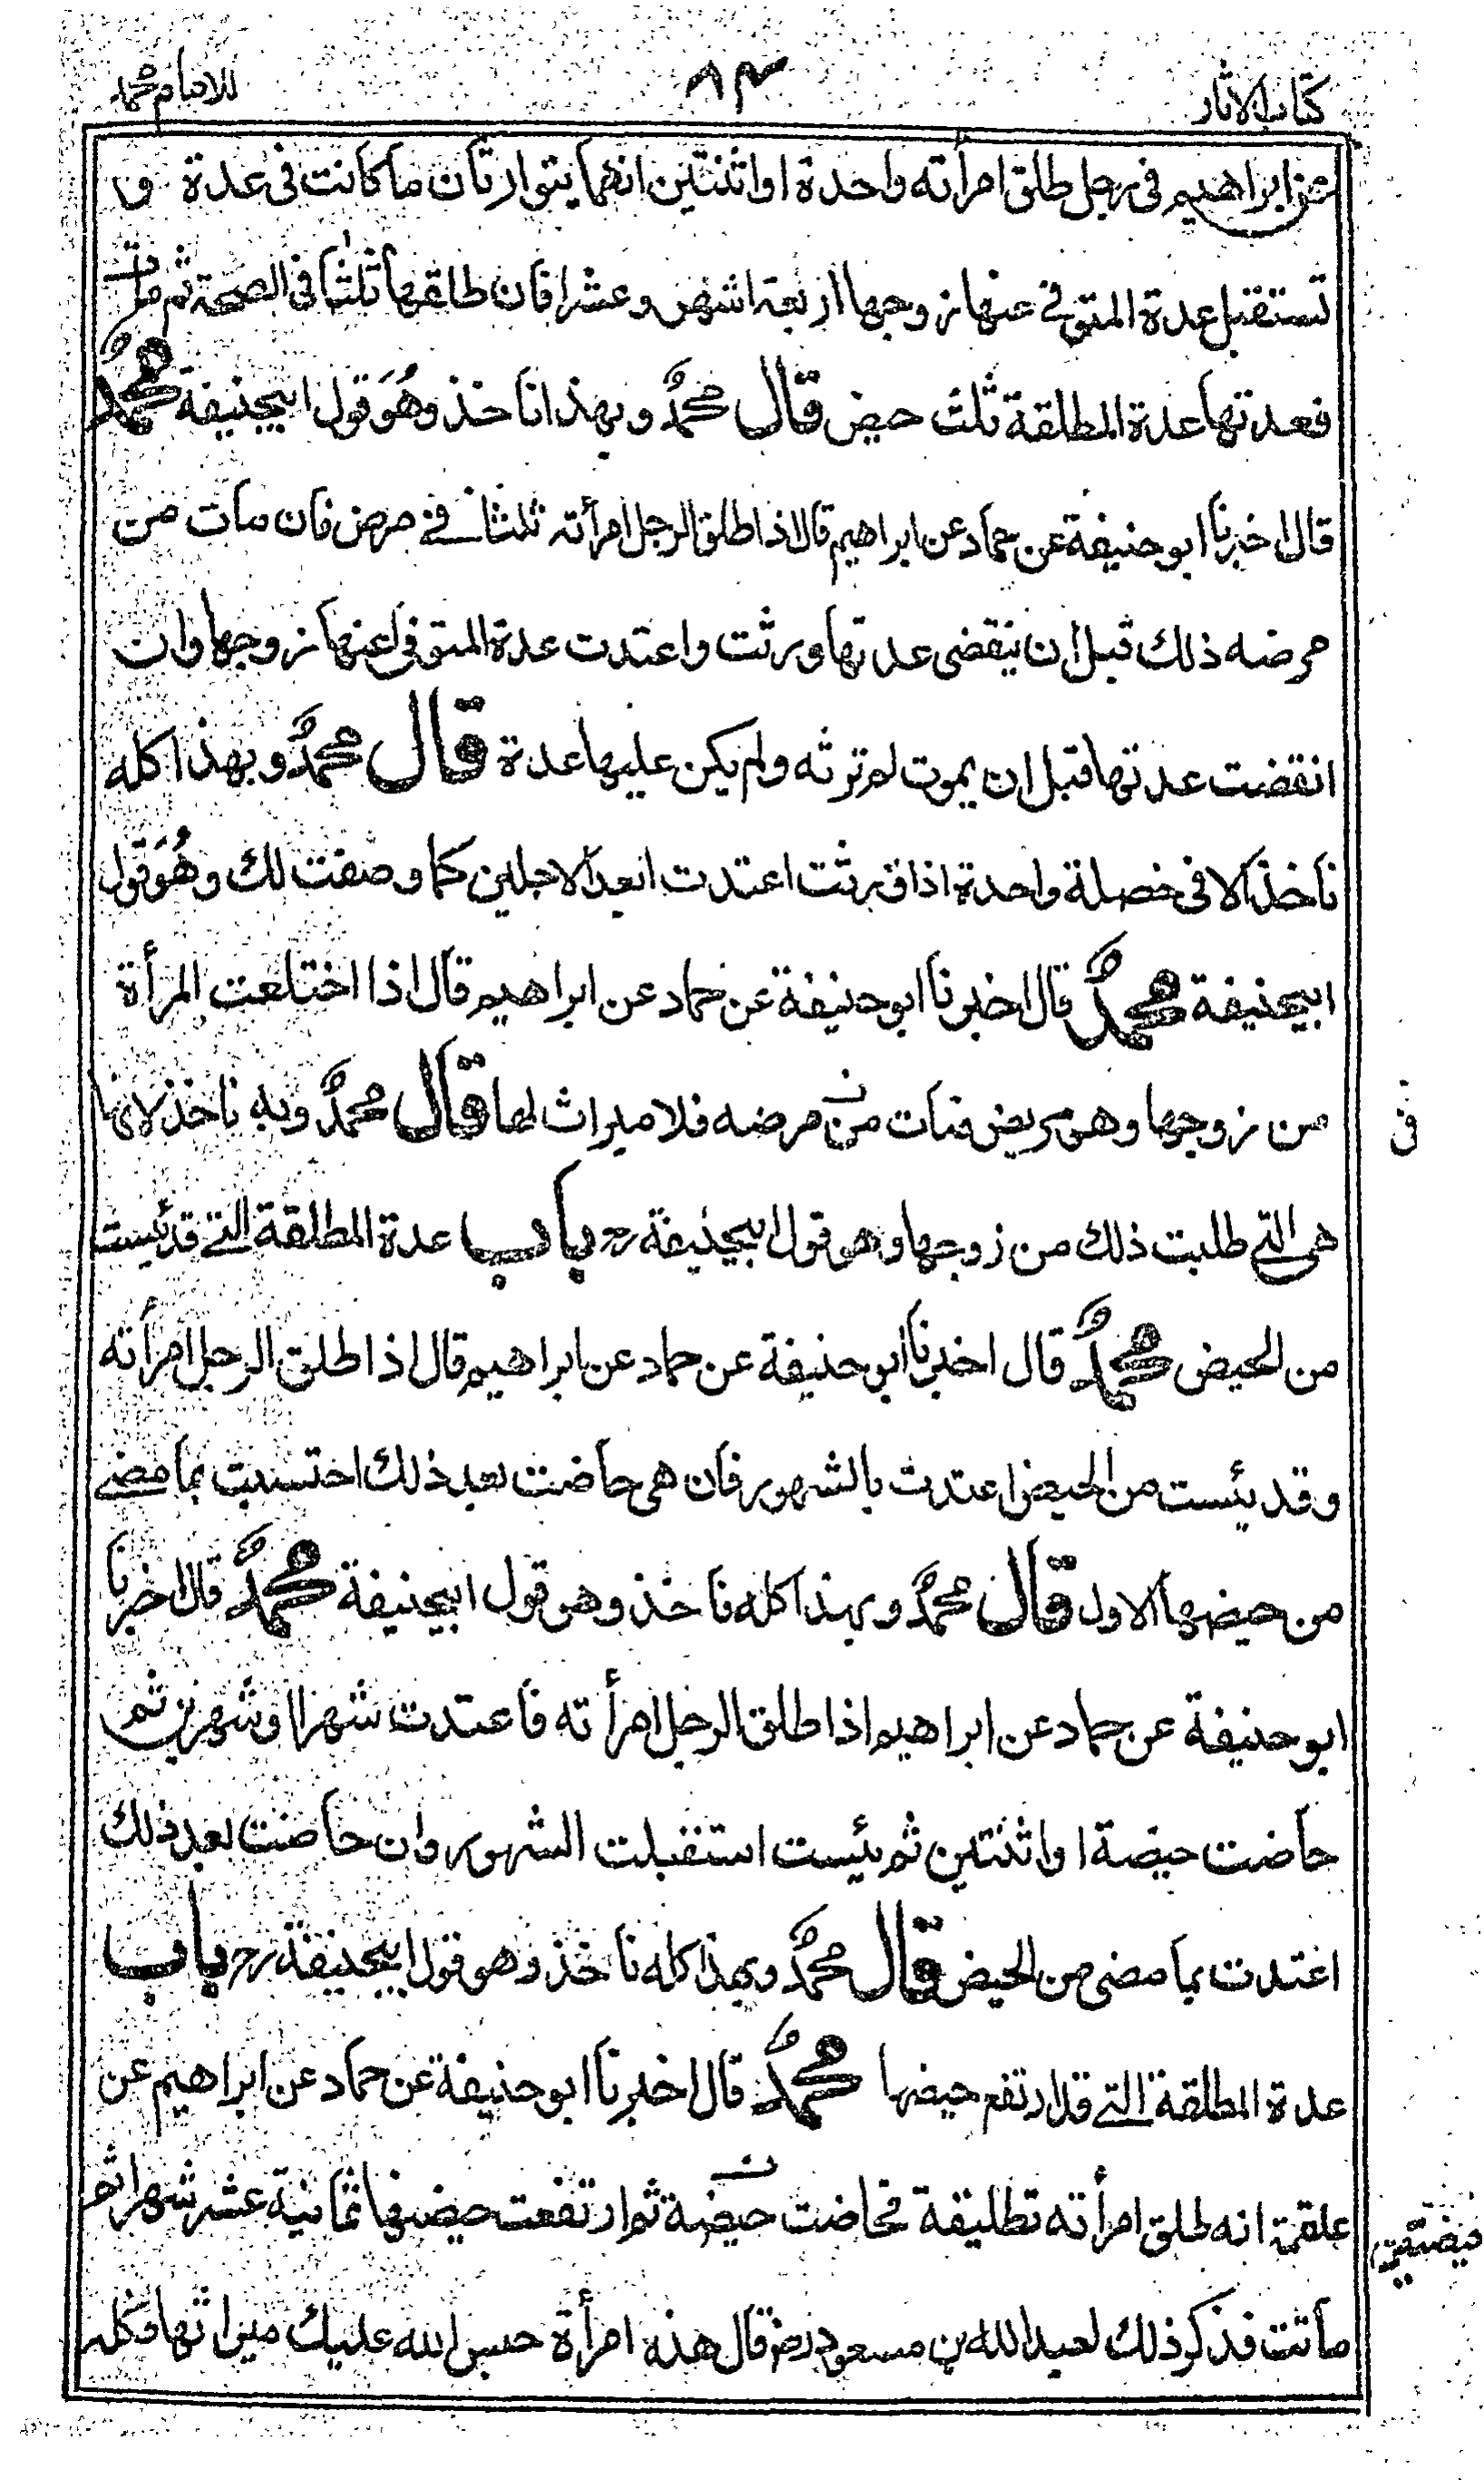 كتاب الاثار ٨٣ للامام محمد
عن ابراهيم فى رجل طلق امرأته واحدة او اثنتين انهما يتوارثان ما كانت فى عدة و
تستقبل عدة المتوفى عنها زوجها اربعة اشهر وعشرا فان طلقها ثلثا فى الصحة ثم مات
فعدتها عدة المطلقة ثلث حيض قال محمدٌ وبهذا ناخذ وهُوَ قول ابيحنيفة محمدٌ
قال اخبرنا ابو حنيفة عن حماد عن ابراهيم قال اذا طلق الرجل امرأته ثلثا فى مرض فان مات من
مرضه ذلك قبل ان ينقضى عدتها ورثت واعتدت عدة المتوفى عنها زوجها وان
انقضت عدتها قبل ان يموت لم ترثه ولم يكن عليها عدة قال محمدٌ وبهذا كله
ناخذ الا فى خصلة واحدة اذا ورثت اعتدت ابعد الاجلين كما وصفت لك وهُوَ قول
ابيحنيفة محمدٌ قال اخبرنا ابو حنيفة عن حماد عن ابراهيم قال اذا اختلعت المرأة
من زوجها وهو مريض فمات من مرضه فلا ميراث لها قال محمدٌ وبه ناخذ لانها
فى
هى التى طلبت ذلك من زوجها وهو قول ابيحنيفة رح باب عدة المطلقة التى قد يئست
من الحيض محمدٌ قال اخبرنا ابو حنيفة عن حماد عن ابراهيم قال اذا طلق الرجل امرأته
وقد يئست من الحيض اعتدت بالشهور فان هى حاضت بعد ذلك احتسبت بما مضى
من حيضها الاول قال محمدٌ وبهذا كله ناخذ وهو قول ابيحنيفة محمدٌ قال اخبرنا
ابو حنيفة عن حماد عن ابراهيم اذا طلق الرجل امرأته فاعتدت شهرا او شهرين ثم
حاضت حيضة او اثنتين ثم يئست استقبلت الشهور وان حاضت بعد ذلك
اعتدت بما مضى من الحيض قال محمدٌ وبهذا كله ناخذ وهو قول ابيحنيفة رح باب
عدة المطلقة التى قد ارتفع حيضها محمدٌ قال اخبرنا ابو حنيفة عن حماد عن ابراهيم عن
علقمة انه طلق امرأته تطليقة فحاضت حيضة ثم ارتفعت حيضها ثمانية عشر شهرا ثم
ماتت فذكر ذلك لعبد الله بن مسعود رض قال هذه امرأة حبس الله عليك ميراثها فكله